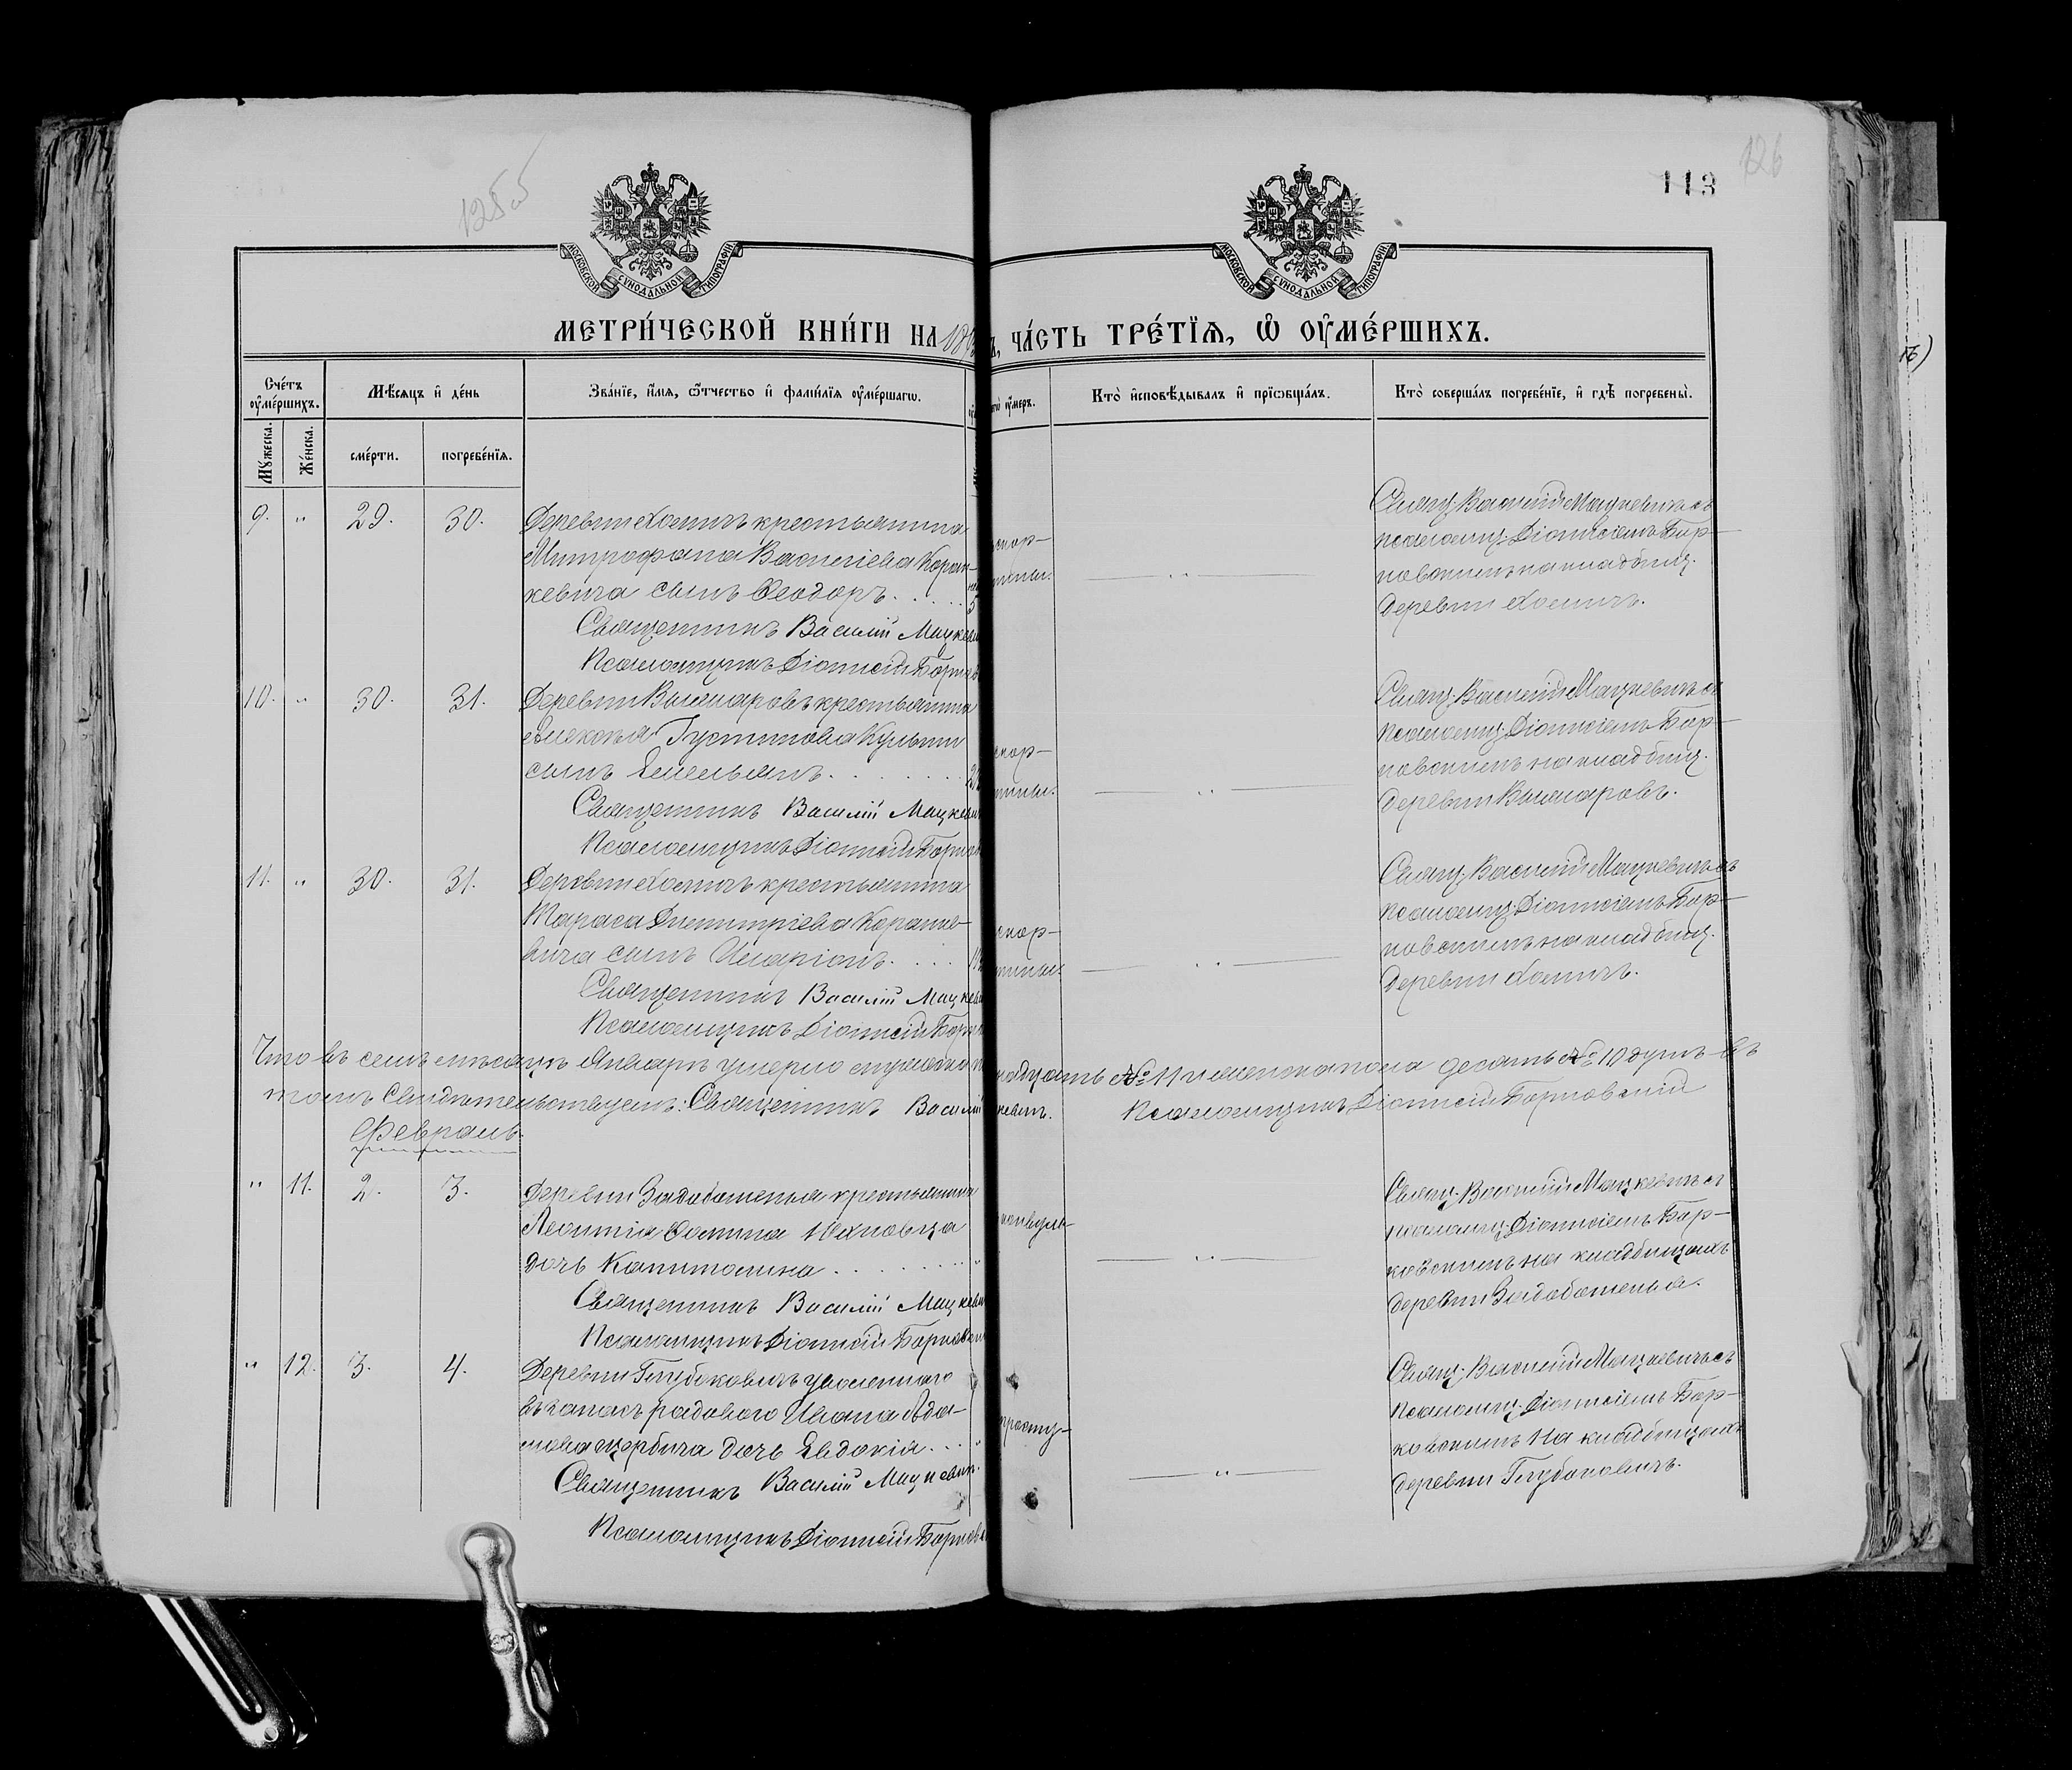 125об
126
113
МОСКОВСКОЙ СУНОДАЛЬНОЙ ТИПОГРАФІИ
МОСКОВСКОЙ СУНОДАЛЬНОЙ ТИПОГРАФІИ
МЕТРИ́ЧЕСКОЙ КНИ́ГИ НА 18
, ЧА́СТЬ ТРЕ́ТЇѦ, Ѡ҆ ОУ҆МЕ́РШИХЪ.
Сче́тъ оу҆ме́ршихъ.
Мѣ́сяцъ и҆ де́нь
Зва́нїе, и҆́мѧ, ѻ҆́тчество и҆ фами́лїѧ оу҆ме́ршагѡ.
оу҆́меръ.
Кто̀ и҆сповѣ́дывалъ и҆ прїѡбща́лъ.
Кто̀ соверша́лъ погребе́нїе, и҆ гдѣ̀ погребены̀.
Мꙋ́жеска.
Же́нска.
сме́рти.
погребе́нїѧ.
9. " 29. 30. Деревни Хоничъ крестьянина
Митрофана Василіева Коран-
кевича сынъ Ѳеодоръ.
Священникъ Василій Мацкеви
Псаломщикъ Діонисій Борков
скор-
тины.
"
Свящ. Василій Мацкевичъ съ
псаломщ. Діонисіемъ Бор-
ковскимъ на кладбищ.
деревни Хоничъ.
10. " 30. 31. Деревни Вышшаровъ крестьянина
Алексѣя Густинова Кульши
сынъ Емельянъ.
Священникъ Василій Мацкеви
Псаломщикъ Діонисій Борков
скор-
тины.
"
Свящ. Василій Мацкевичъ съ
псаломщ. Діонисіемъ Бор-
ковскимъ на кладбищ.
деревни Вышшаровъ.
11. " 30. 31. Деревни Хоничъ крестьянина
Тараса Димитріева Коранке-
вича сынъ Иларіонъ.
Священникъ Василій Мацкеви
Псаломщикъ Діонисій Борков
скор-
тины.
"
Свящ. Василій Мацкевичъ съ
псаломщ. Діонисіемъ Бор-
ковскимъ на кладбищ.
деревни Хоничъ.
Что въ семъ мѣсяцѣ Январѣ умерло мужеска надцать № 11 и женска пола десять № 10 душъ въ
томъ свидѣтельствуемъ: Священникъ Василій кевичъ. Псаломщикъ Діонисій Борковскій
Февраль.
" 11. 2. 3. Деревни Задоботенья крестьянина
Леонтія Ѳомина Юхновца
дочь Капитолина
Священникъ Василій Мацкеви
Псаломщикъ Діонисій Борковск
конвуль-
"
Свящ. Василій Мацкевичъ съ
псаломщ. Діонисіемъ Бор-
ковскимъ на кладбищахъ
деревни Задоботенья.
" 12. 3. 4. Деревни Глубоковичъ уволеннаго
въ запасъ рядового Ивана Ада-
мова Щербича дочь Евдокія
Священникъ Василій Мацкевич.
Псаломщикъ Діонисій Борковс
просту-
"
Свящ. Василій Мацкевичъ съ
псаломщ. Діонисіемъ Бор-
ковскимъ на кладбищахъ
деревни Глубоковичъ.